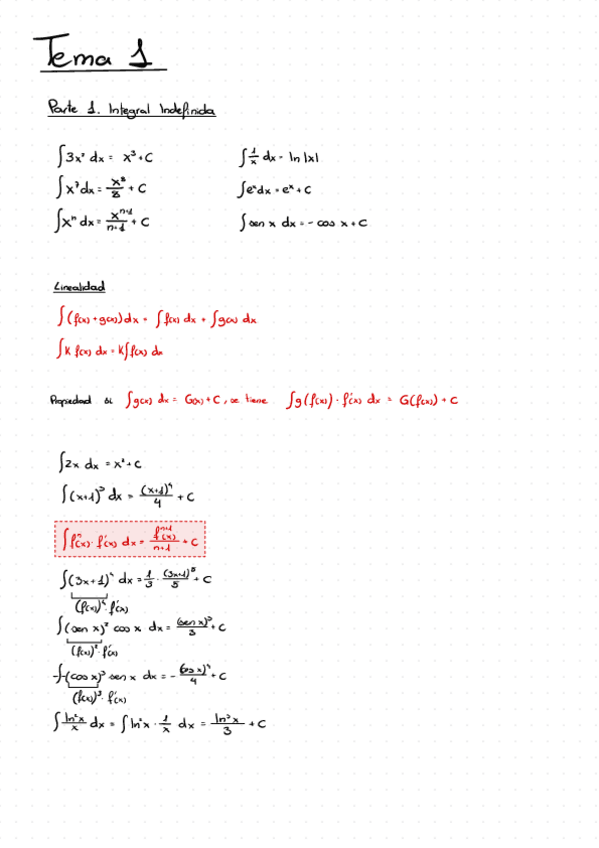 Tema 1
Parte 1. Integral Indefinida
∫3x² dx = x³ + C
∫1/x dx = ln |x|
∫x⁷ dx = x⁸/8 + C
∫eˣ dx = eˣ + C
∫xⁿ dx = xⁿ⁺¹/n+1 + C
∫sen x dx = - cos x + C
Linealidad
∫(f(x) + g(x)) dx = ∫f(x) dx + ∫g(x) dx
∫K f(x) dx = K∫f(x) dx
Propiedad Si ∫g(x) dx = G(x) + C, se tiene ∫g(f(x)) · f'(x) dx = G(f(x)) + C
∫2x dx = x² + C
∫(x+1)³ dx = (x+1)⁴/4 + C
∫fⁿ(x) · f'(x) dx = fⁿ⁺¹(x)/n+1 + C
∫(3x+1)⁴ dx = 1/3 · (3x+1)⁵/5 + C
(f(x))⁴ · f'(x)
∫(sen x)² cos x dx = (sen x)³/3 + C
(f(x))² · f'(x)
∫-(cos x)³ · sen x dx = - (cos x)⁴/4 + C
(f(x))³ · f'(x)
∫ln²x/x dx = ∫ln²x · 1/x dx = ln³x/3 + C